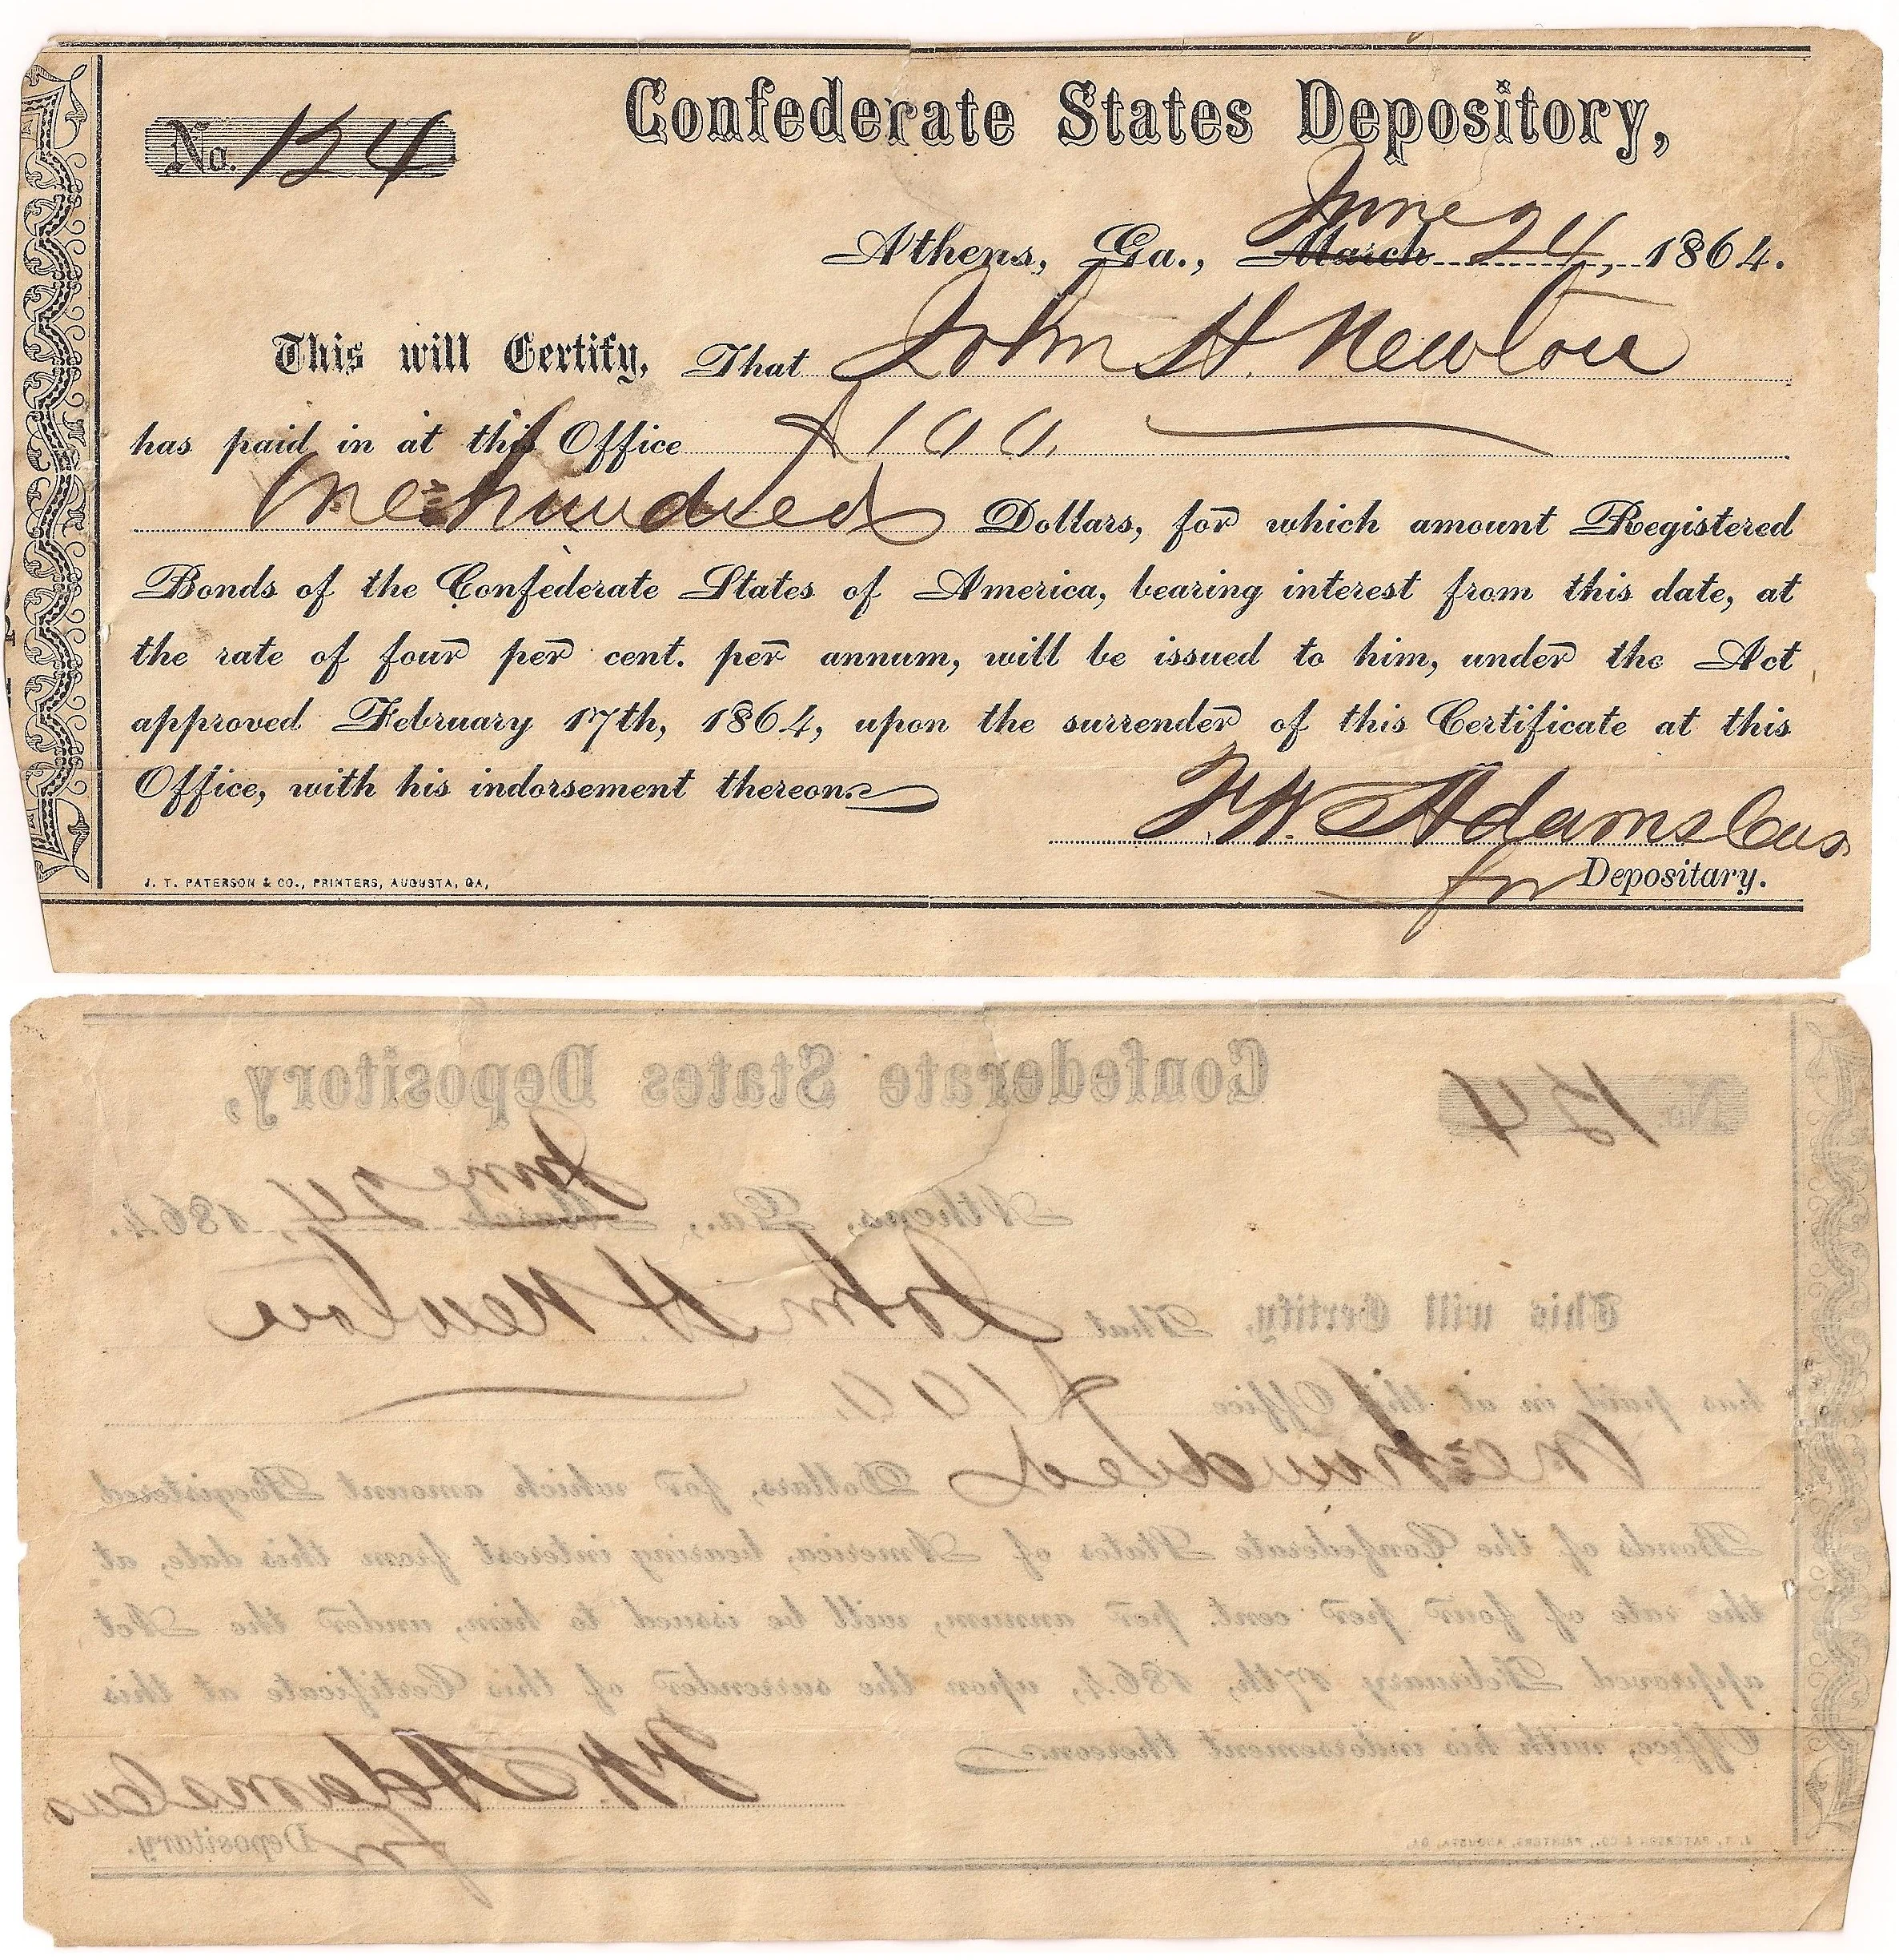 Confederate States Depository,
No. 124
June 24
Athens, Ga., March , 1864.
This will Certify, That John H. Newton
has paid in at this Office $100.
One hundred Dollars, for which amount Registered
Bonds of the Confederate States of America, bearing interest from this date, at
the rate of four per cent. per annum, will be issued to him, under the Act
approved February 17th, 1864, upon the surrender of this Certificate at this
Office, with his indorsement thereon.
F. W. Adams Cas
for Depositary.
J. T. PATERSON & CO., PRINTERS, AUGUSTA, GA,